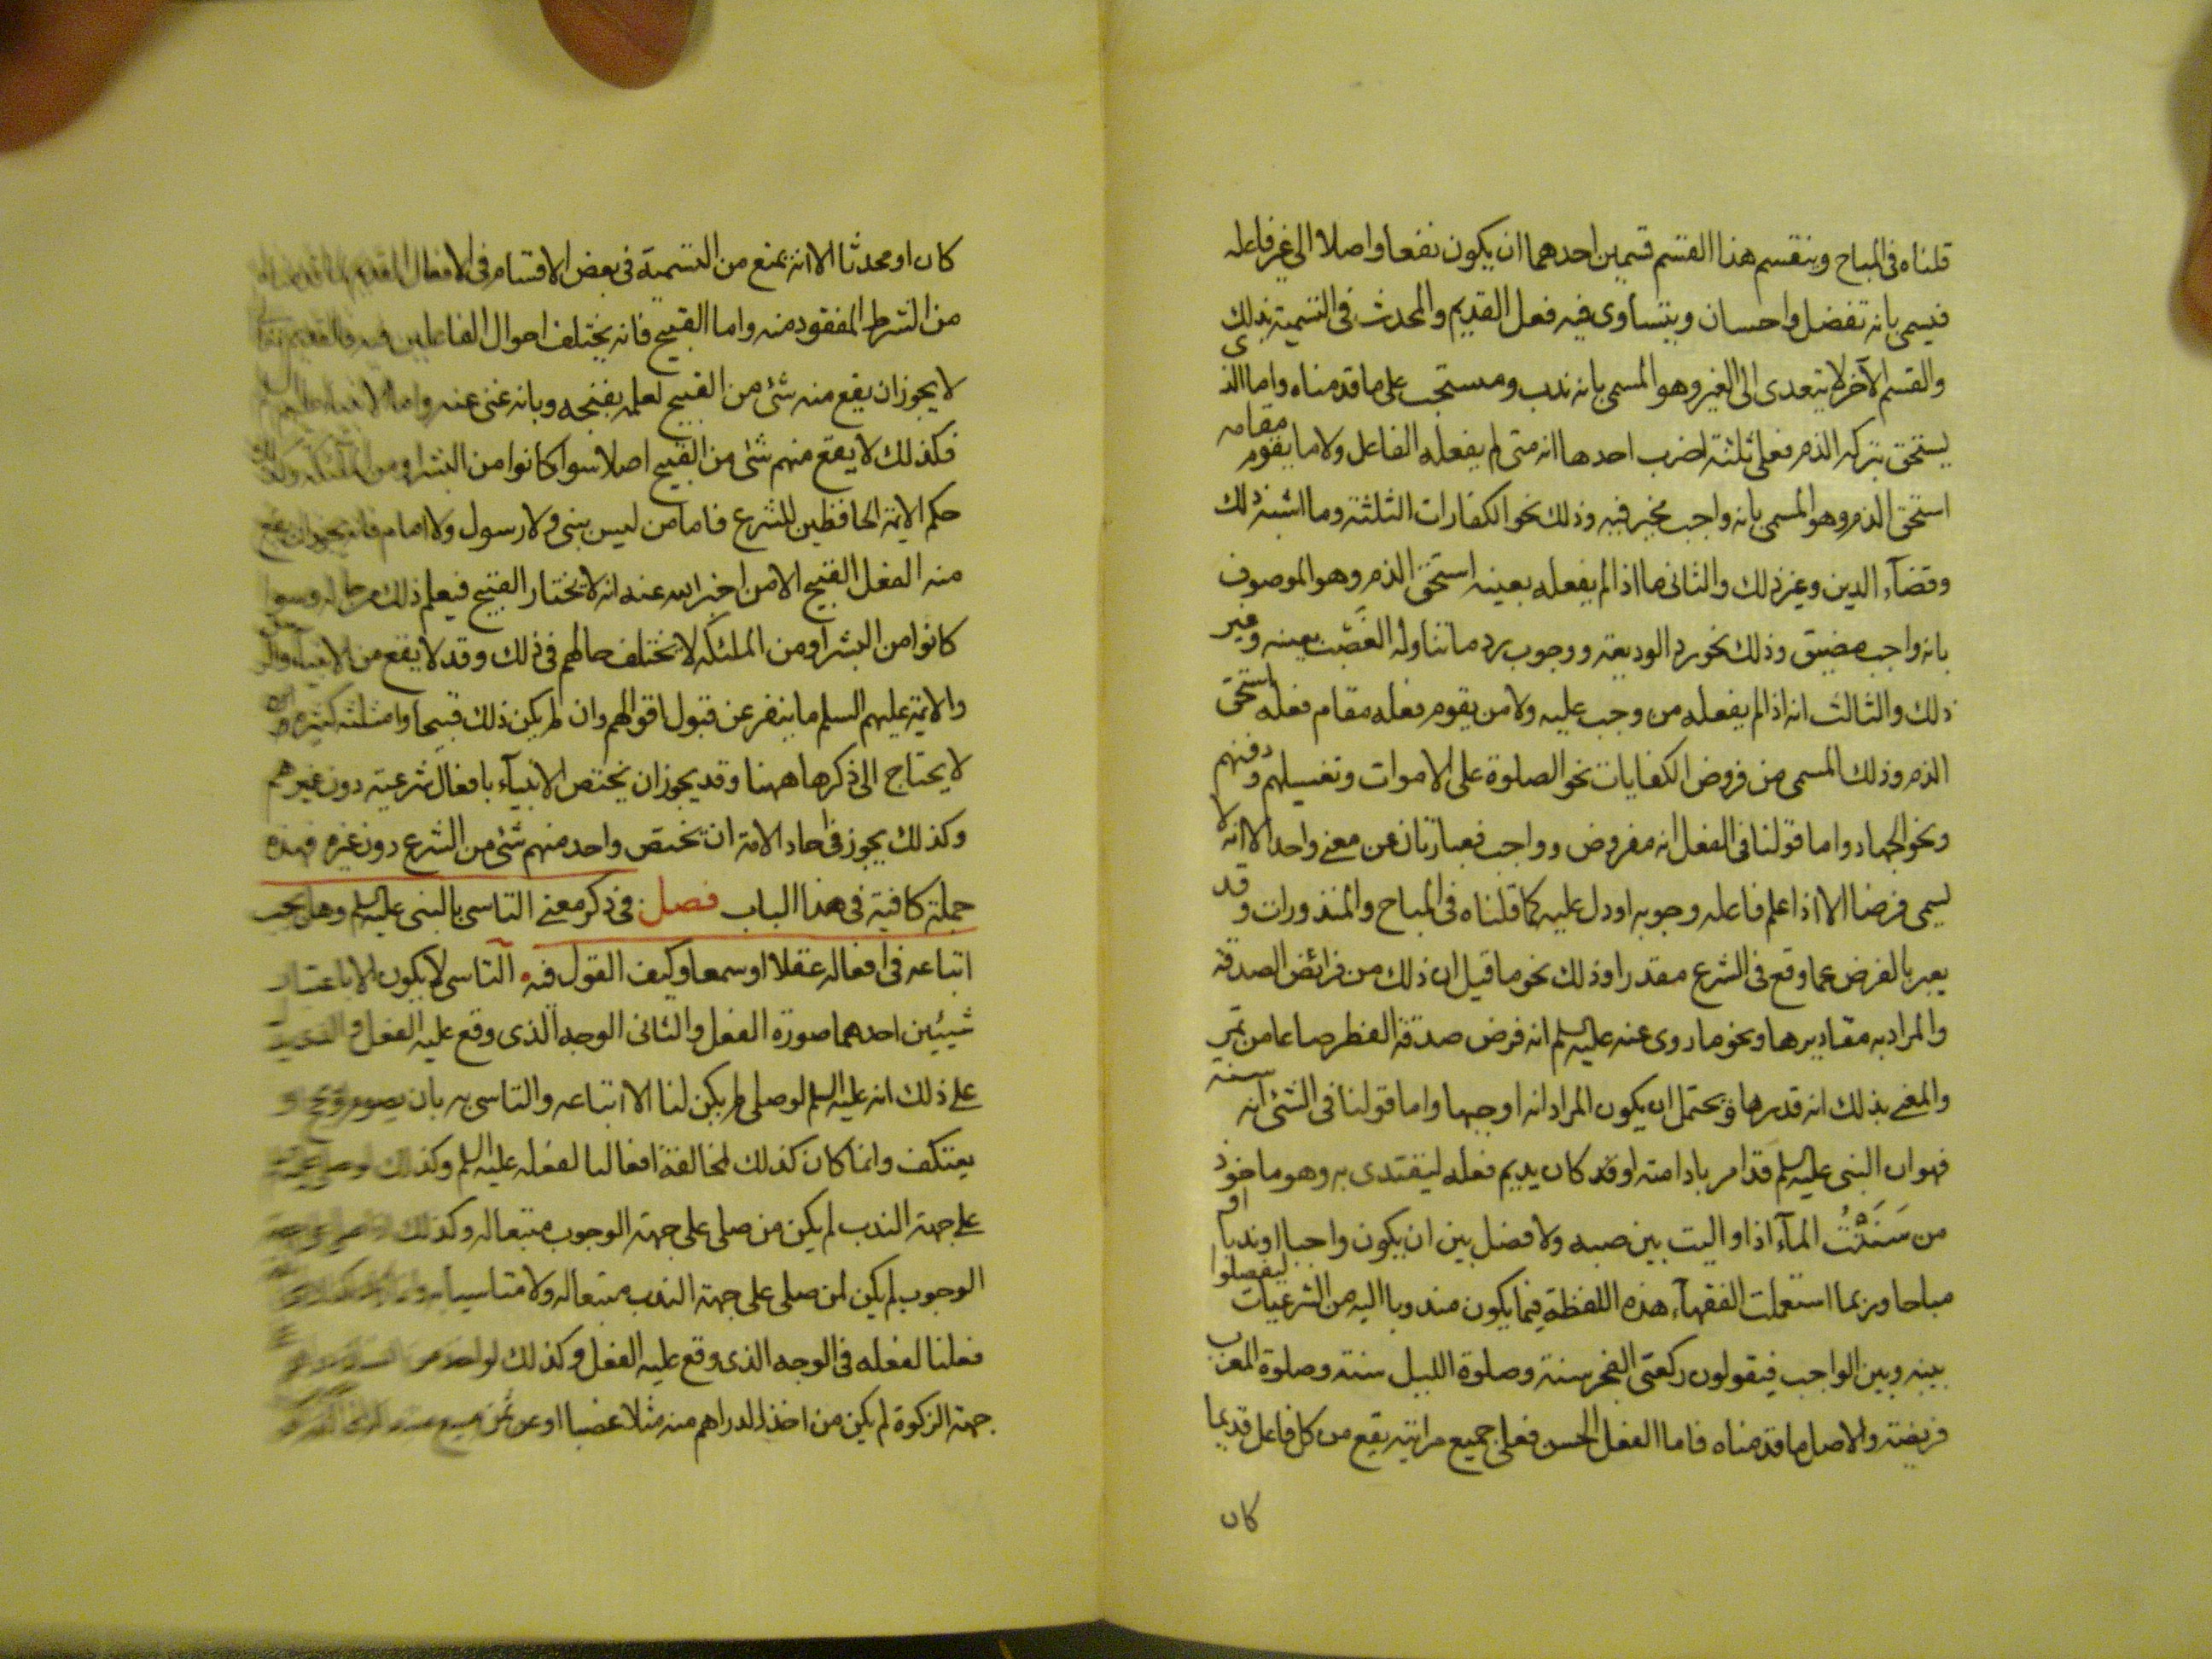 قلناه فى المباح وينقسم هذا القسم قسمين احدهما ان يكون نفعا واصلا الى غير فاعله
فيسمى بانه تفضل واحسان ويتساوى فيه فعل القديم والمحدث فى التسمية بذلك
والقسم الآخر لا يتعدى الى الغير وهو المسمى بانه ندب ومستحب على ما قدمناه واما الذى
يستحق بتركه الذم فعلى ثلثة اضرب احدها انه متى لم يفعله الفاعل ولا ما يقوم مقامه
استحق الذم وهو المسمى بانه واجب مخير فيه وذلك نحو الكفارات الثلثة وما اشبه ذلك
وقضآء الدين وغير ذلك والثانى ما اذا لم يفعله بعينه استحق الذم وهو الموصوف
بانه واجب مضيق وذلك نحو رد الوديعة ووجوب رد ما تناوله الغصب بعينه وغير
ذلك والثالث انه اذا لم يفعله من وجب عليه ولا من يقوم فعله مقام فعله استحق
الذم وذلك المسمى من فروض الكفايات نحو الصلوة على الاموات وتغسيلهم ودفنهم
ونحو الجهاد واما قولنا فى الفعل انه مفروض وواجب فعبارتان عن معنى واحد الا انه لا
يسمى فرضا الا اذا علم فاعله وجوبه او دل عليه كما قلناه فى المباح والمنذورات وقد
يعبر بالفرض عما وقع فى الشرع مقدرا وذلك نحو ما قيل ان ذلك من فرائض الصدقة
والمراد به مقاديرها ونحو ما روى عنه عليه السلم انه فرض صدقة الفطر صاعا من تمر
والمعنى بذلك انه قدرها ويحتمل ان يكون المراد انه اوجبها واما قولنا فى الشئ انه سنة
فهو ان النبى عليه السلم قد امر بادامته او قد كان يديم فعله ليقتدى به وهو ماخوذ
من سَنَنْتُ المآء اذا واليت بين صبه ولا فصل بين ان يكون واجبا او ندبا او
مباحا وربما استعملت الفقهآء هذه اللفظة فيما يكون مندوبا اليه من الشرعيات ليفصلوا
بينه وبين الواجب فيقولون ركعتى الفجر سنة وصلوة الليل سنة وصلوة المغرب
فريضة والاصل ما قدمناه فاما الفعل الحسن فعلى جميع مراتبه يقع من كل فاعل قديما
كان
كان او محدثا الا انه يمنع من التسمية فى بعض الاقسام فى الافعال
من الشرط المفقود منه واما القبيح فانه يختلف احوال الفاعلين فيه
لا يجوز ان يقع منه شئ من القبيح لعلمه بقبحه وبانه غنى عنه واما الانبياء عليهم السلم
فكذلك لا يقع منهم شئ من القبيح اصلا سوا كانوا من البشر او من الملئكة وكذلك
حكم الائمة الحافظين للشرع فاما من ليس بنبى ولا رسول ولا امام فانه يجوز ان يقع
منه الفعل القبيح الا من اخبر الله عنه انه لا يختار القبيح فيعلم ذلك من حاله وسوا
كانوا من البشر او من الملئكة لا يختلف حالهم فى ذلك وقد لا يقع من الانبيآء
والائمة عليهم السلم ما ينفر عن قبول اقوالهم وان لم يكن ذلك قبيحا وامثلته كثيرة
لا يحتاج الى ذكرها ههنا وقد يجوز ان يختص الانبيآء بافعال شرعية دون غيرهم
وكذلك يجوز فى احاد الامة ان يختص واحد منهم شئ من الشرع دون غيره فهذه
جملة كافية فى هذا الباب فصل فى ذكر معنى التاسى بالنبى عليه السلم وهل يجب
اتباعه فى افعاله عقلا او سمعا وكيف القول فيه التاسى لا يكون الا باعتبار
شيئين احدهما صورة الفعل والثانى الوجه الذى وقع عليه الفعل
على ذلك انه عليه السلم لو صلى لم يكن لنا الا اتباعه والتاسى به بان يصوم ويحج او
يعتكف وانما كان كذلك لمخالفة افعالنا لفعله عليه السلم وكذلك لو صلى
على جهة الندب لم يكن من صلى على جهة الوجوب متبعا له وكذلك
الوجوب لم يكن لمن صلى على جهة الندب متبعا له ولا متاسيا به
فعلنا لفعله فى الوجه الذى وقع عليه الفعل وكذلك لو اخذ من
جهة الزكوة لم يكن من اخذ الدراهم منه مثلا غصبا او عن ثمن مبيع